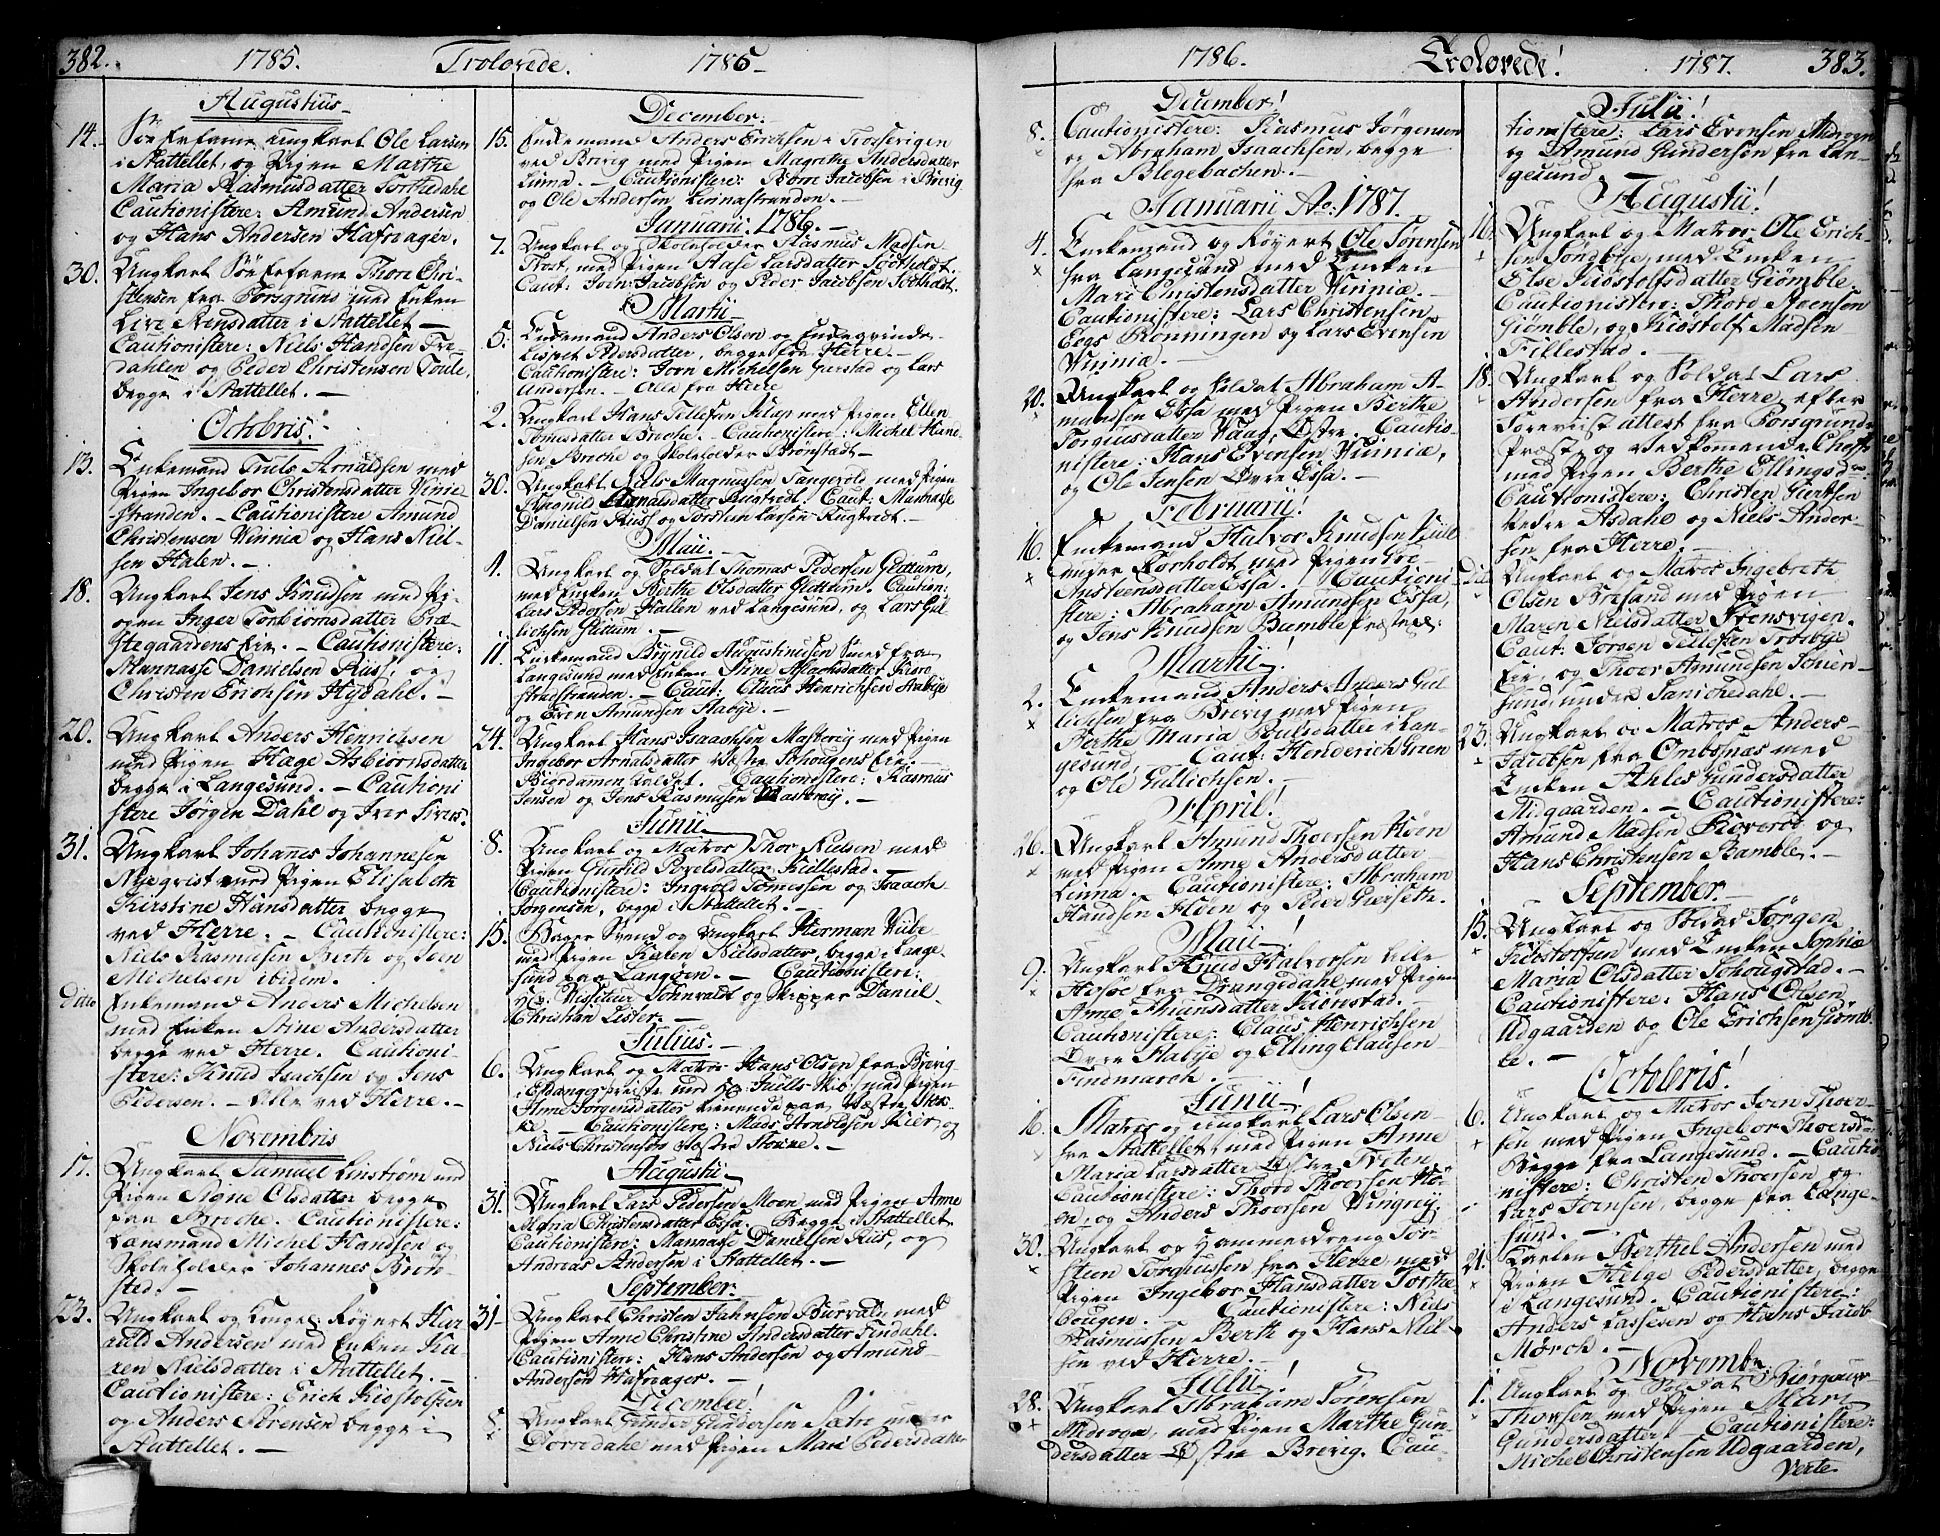 382. 1785. Trolovede. 1786
Augustus
14. Søe Erfarne ungkarl Ole Larsen
i Stattellet og Pigen Marthe
Maria Rasmusdatter Tørthedahl
Cautionistere: Amund Andersen
og Hans Andersen Hafsager.
30. Ungkarl Søe Erfarne Thore Chri-
stensen fra Porsgrund med Enken
Live Svensdatter i Stattellet
Cautionistere: Niels Handsen Tve-
dahlen og Peder Christensen Toule,
begge i Stattellet.
Octobris.
13. Enkemand Truls Arnaldsen med
Pigen Ingebor Christensdatter Vinie-
stranden. Cautionistere Amund
Christensen Vinnia og Hans Niel-
sen Halen.
18. Ungkarl Jens Knudsen med Pi-
gen Inger Torbiørnsdatter Præ-
stegaardens Eie. Cautionistere:
Mannasse Danielsen Riis, og
Christen Erichsen Hydahl.
20. Ungkarl Anders Henrichsen
med Pigen Hage Asbiørnsdatter
begge i Langesund. Cautioni
stere Jørgen Dahl og Iver Sivers.
31. Ungkarl Johanes Johannesen
Nyeqvist med Pigen Elisabeth
Kirstine Hansdatter begge
ved Herre. Cautionistere:
Niels Rasmusen Berth og Joen
Michelsen ibidem.
Ditto Enkemand Anders Michelsen
med Enken Stine Andersdatter
begge ved Herre. Cautioni-
stere: Knud Isachsen og Jens
Pedersen. Alle ved Herre.
Novembris
17. Ungkarl Samuel Linstrøm med
Pigen Signe Olsdatter begge
paa Breche. Cautionistere:
Lænsmand Michel Handsen og
Skoleholder Johannes Brøn-
sted.
23. Ungkarl og Konge Røyert Har
ald Andersen med Enken Ka-
ren Nielsdatter i Stattellet.
Cautionistere: Erich Kiøstolsen
og Anders Sørensen begge i
Stattellet.
December:
15. Enkemand Anders Erichsen i Trosvigen
ved Brevig med Pigen Magrethe Andersdatter
Linna. Cautionistere: Børre Jacobsen i Brevig
og Ole Andersen Linnastranden.
Januarii: 1786.
7. Ungkarl og Skoleholder Rasmus Madsen
Trost, med Pigen Aase Larsdatter Sootholdt.
Caut: Joen Jacobsen og Peder Jacobsen Sootholdt.
Martii
5. Enkemand Anders Olsen og Enkeqvinde
Lispet Pedersdatter, begge fra Herre.
Cautionistere: Jorn Michelsen Gierstad og Lars
Andersen. Alle fra Herre
2. Ungkarl Hans Tellefsen Kilap med Pigen Ellen
Tomesdatter Breche. Cautionistere: Michel Han-
sen Breche og Skoleholder Brønstadt.
30. Ungkarl Niels Magnussen Tangevald med Pigen
Torgunild Arnalsdatter Rugtvedt. Caut: Mannasse
Danielsen Riis og Torsten Larsen Rugtvedt.
Maii.
4. Ungkarl og Soldat Thomas Pedersen Glittum,
med Enken Berthe Olsdatter Glittum. Caution:
Lars Pedersen Hallen ved Langesund, og Lars Gul
lichsen Glittum.
11. Enkemand Brynild Augustinusen Smed fra
Langesund med Enken Stine Isachsdatter
stranden. Caut: Claus Henrichsen Aabye
og Even Amundsen Aabye.
24. Ungkarl Hans Isaachsen Mastereig med Pigen
Ingebor Arnalsdatter Vestre Schougens Eie.
Biordammen kaldet. Cautionistere: Rasmus
Jensen og Jens Rasmusen Mastereig.
Junii
8. Ungkarl og Matros Thor Nielsen med
Pigen Gunild Povelsdatter Killestad.
Cautionistere: Ingvold Tomessen og Isaach
Jørgensen, begge i Stattellet.
15. Bager Svend og Ungkarl Herman Vibe
med Pigen Karen Nielsdatter, begge i Lange
sund paa Langøen. Cautionistere:
Hr. Visiteur Sohnvaldt og Skipper Daniel
Christian Lister.
Julius.
6. Ungkarl og Matros Hans Olsen fra Brevig
i Eidanger
Anne Jørgensdatter tienende paa Væstre
Cautionistere: Mads Arnoldsen Kier og
Niels Christensen Østre Tvetene.
Augustii
31. Ungkarl Lars Pedersen Moen med Pigen Anne
Maria Christensdatter Essa. Begge i Stattellet
Cautionistere: Mannasse Danielsen Riis, og
Andreas Andersen i Stattellet.
September
31 Ungkarl Christen Jahnsen Burvald med
Pigen Anne Christine Andersdatter Findahl.
Cautionistere: Hans Andersen og Amund
Andersen Hafsager.
December!
8. Ungkarl Gunder Gundersen Sætre under
Dørredahl med Pigen Mari Pedersdatter
1786. Trolovede! 1787. 383.
December!
8. Cautionistere: Rasmus Jørgensen
og Abraham Isaachsen, begge
fra Blegebachen.
Januarii Ao: 1787.
4. Enkemand og Røyert Ole Sørensen
fra Langesund med Enken
Mari Christensdatter Vinniæ.
Cautionistere: Lars Christensen
Eegs Rønningen og Lars Evensen
Vinniæ.
20. Ungkarl og Soldat Abraham A-
mundsen Essa med Pigen Berthe
Torgiusdatter Vaag Østre. Cautio-
nistere: Hans Evensen Vinniæ,
og Ole Jensen Øvre Essa.
Februarii!
16. Enkemand Halvor Knudsen Kiil
under Forholdt med Pigen Gro
Austeensdatter Essa. Cautioni
stere: Abraham Amundsen Essa,
og Jens Knudsen Bamble præsteg:
Martii!
2. Enkemand Anders Anders Gul-
lichsen fra Brevig med Pigen
Berthe Maria Poulsdatter i Lan-
gesund. Caut: Henderich Green
og Ole Gullichsen.
April!
26. Ungkarl Amund Thoersen Hoen
med Pigen Anne Andersdatter
Linna. Cautionistere: Abraham
Handsen Hoen og Peder Gierseth.
Maii
9. Ungkarl Knud Halvorsen Lille
Hosøe fra Drangedahl med Pigen
Anne Amunsdatter Krønstad.
Cautionistere: Claus Henrichsen
Øvre Aabye og Elling Clausen
Findmarch.
Junii!
16. Matros og ungkarl Lars Olsen
fra Stattellet, med Pigen Anne
Maria Larsdatter Østre Tveten
Cautionistere: Thord Thoersen Ho-
en, og Anders Thoersen Vingreij.
30. Ungkarl og Hammerdreng Tor-
steen Torgiussen fra Herre med
Pigen Ingebor Hansdatter Torskæ
Cougen. Cautionistere: Niels
Rasmussen Berth og Hans Niel-
sen ved Herre.
Julii!
28. Ungkarl Abraham Sørensen
Nedvogn, med Pigen Marthe Gun-
dersdatter Østre Brevig. Cau-
Julii!
tionistere: Lars Evensen Nedvogn
og Amund Gundersen fra Lan-
gesund.
Augustii!
16. Ungkarl og Matros Ole Erich-
sen Sondbye, med Enken
Else Kiøstolfsdatter Giømble.
Cautionistere: Thord Svensøn
Giømble, og Kiøstolf Madsen
Fillestad.
18. Ungkarl og Soldat Lars
Andersen fra Herre, efter
Foreviist attest fra Porsgrund
Præst og Vedkommende Cheff
med Pigen Berthe Ellingsd:
Cautionistere: Christen Giertsen
Nedre Asdahl og Niels Ander-
sen fra Herre.
Dito Ungkarl og Matros Ingebreth
Olsen Brefand med Pigen
Maren Nielsdatter Steensvigen.
Caut: Jørgen Tellefsen Trosbye
Eie, og Thoer Amundsen Schien-
sund, under Sanichedahl.
23. Ungkarl og Matros Anders
Jacobsen fra Ombosnæs med
Enken Ahles Gundersdatter
Midgaarden. Cautionistere:
Amund Madsen Kioverød og
Hans Christensen Bamble.
September.
15. Ungkarl og Soldat Jørgen
Kiøstolfsen med Enken Sophiæ
Maria Olsdatter Schougstad.
Cautionistere: Hans Olsen,
Udgaarden og Ole Erichsen Giømb
le.
Octobris!
6. Ungkarl og Matros Iven Thoer
sen med Pigen Ingebor Thoersd
Begge fra Langesund. Cautio
nistere: Christen Thoersen og
Lars Joensen, begge fra Lange-
sund.
21. Karlen Berthel Andersen med
Pigen Helge Pedersdatter, begge
i Langesund. Cautionistere:
Anders Lassesen og Hans Jacob
Mørch.
Novembr.
1. Ungkarl og Soldat Biørgulf
Thorsen med Pigen Mari
Gundersdatter. Cautionistere:
Michel Christensen Udgaarden,
Verte